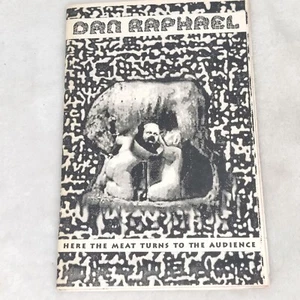 DAN RAPHAEL
HERE THE MEAT TURNS TO THE AUDIENCE